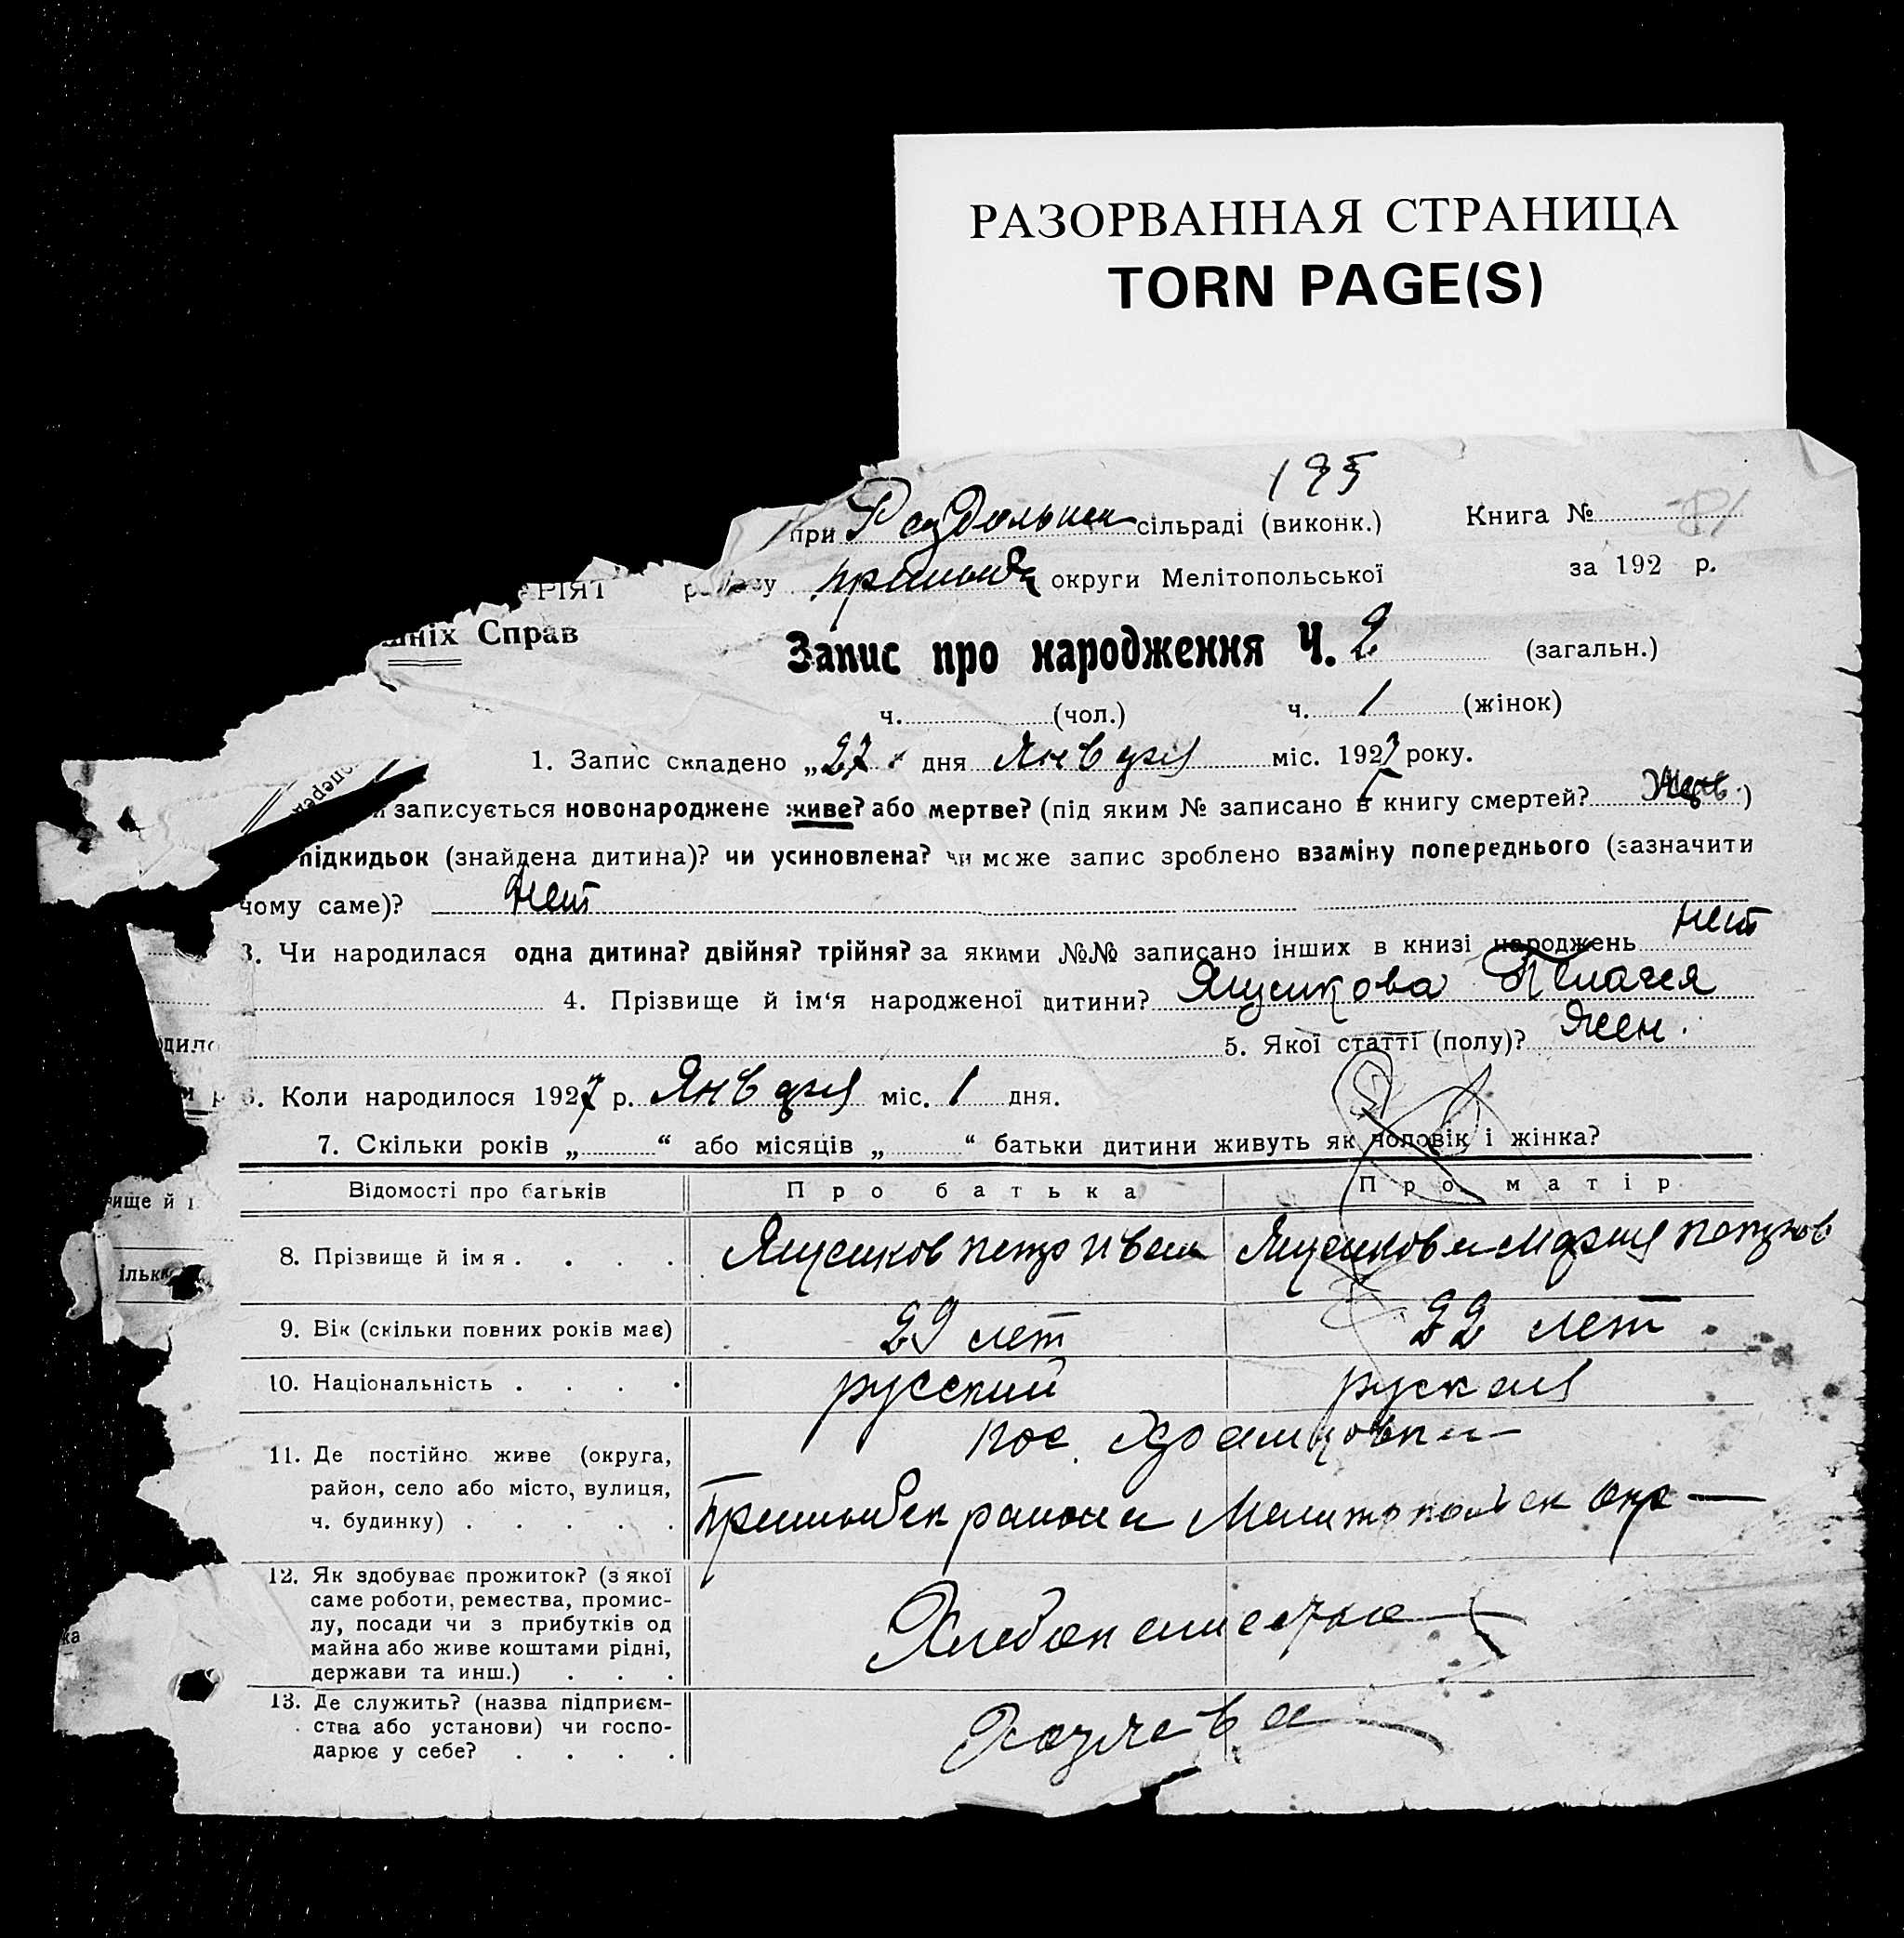 РАЗОРВАННАЯ СТРАНИЦА
TORN PAGE(S)
195
при Раздольнен сільраді (виконк.) Книга № 81
РІЯТ округи Мелітопольської за 192 р.
ніх Справ
Запис про народження Ч. 2 (загальн.)
ч. (чол.) ч. 1 (жінок)
1. Запис складено „27 дня Января міс. 1927 року.
записується новонароджене живе? або мертве? (під яким № записано в книгу смертей? )
підкидьок (знайдена дитина)? чи усиновлена? чи може запис зроблено взаміну попереднього (зазначити
чому саме)? Нет
3. Чи народилася одна дитина? двійня? трійня? за якими №№ записано інших в книзі народжень нет
4. Прізвище й ім'я народженої дитини? Ящикова Пелагея
5. Якої статті (полу)? Жен.
6. Коли народилося 1927 р. Января міс. 1 дня.
7. Скільки років „ “ або місяців „ “ батьки дитини живуть як чоловік і жінка?
Відомості про батьків Про батька Про матір
8. Прізвище й імя . . . . Ящиков Петр Иван Ящикова Мария Петров
9. Вік (скільки повних років має) 29 лет 22 лет
10. Національність . . . . русский руская
11. Де постійно живе (округа, пос.
район, село або місто, вулиця,
ч. будинку) . . . . . района Мелитопольск окр
12. Як здобуває прожиток? (з якої
саме роботи, ремества, промис-
лу, посади чи з прибутків од
майна або живе коштами рідні,
держави та инш.) . . .
13. Де служить? (назва підприєм-
ства або установи) чи госпо-
дарює у себе? . . . .